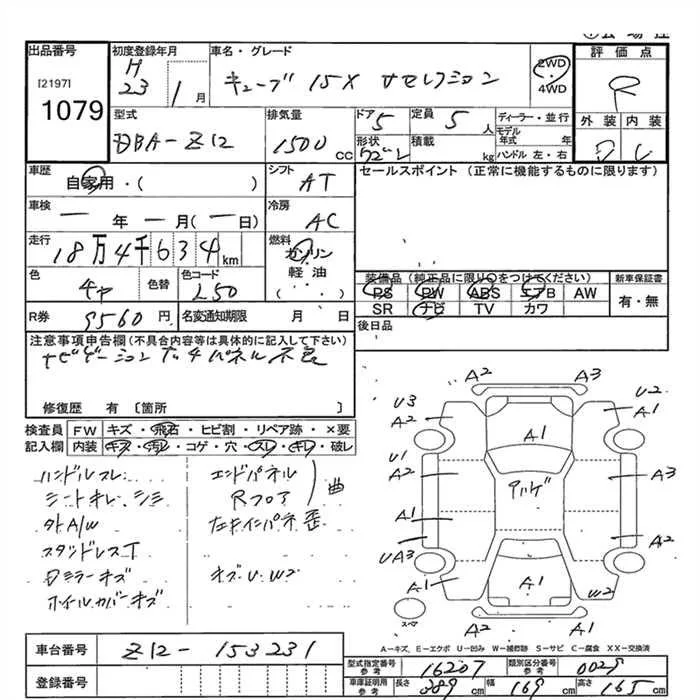 出品番号 初度登録年月 車名・グレード 評価点
[2197]
1079
H 23 1月 キューブ 15X Vセレクション 2WD・4WD R
型式 排気量 ドア 定員 ディーラー・並行 外装 内装
DBA-Z12 1500 CC 5 5人 モデル年式 年
形状 積載 kg ハンドル 左・右
車歴 シフト セールスポイント (正常に機能するものに限ります)
自家用・( ) AT
車検 冷房
一年一月(一日) AC
走行 燃料
18万4千634km ガソリン
軽油
(・・)
色 色替 色コード 装備品 (純正品に限り○をつけてください) 新車保証書
L50 PS PW ABS エアB AW 有・無
SR ナビ TV カワ
R券 9560円 名変通知期限 月 日 後日品
注意事項申告欄 (不具合内容等は具体的に記入して下さい)
ナビゲーション タッチパネル不良
修復歴 有 〔箇所 〕
検査員 FW キズ・飛石・ヒビ割・リペア跡・×要
記入欄 内装 キズ・汚レ・コゲ・穴・スレ・キレ・破レ
ハンドルスレ エンドパネル
シートキレ、シミ Rフロア 曲
外A/W 左リインパネ歪
スタッドレスT
Dミラーキズ キズ・U・W2
ホイルカバーキズ
A2 A3
U3 A2 U2 A1
A1
U1 A2 A3
A1
UA3 A2
A1 A1 W2
スペア A2 A1
A-キズ、E-エクボ U-凹み W-補修跡 S-サビ C-腐食 XX-交換済
車台番号 Z12-153231
登録番号
型式指定番号 参考 16207 類別区分番号 参考 0029
車庫証明用 参考 長さ 389cm 幅 169cm 高さ 165cm